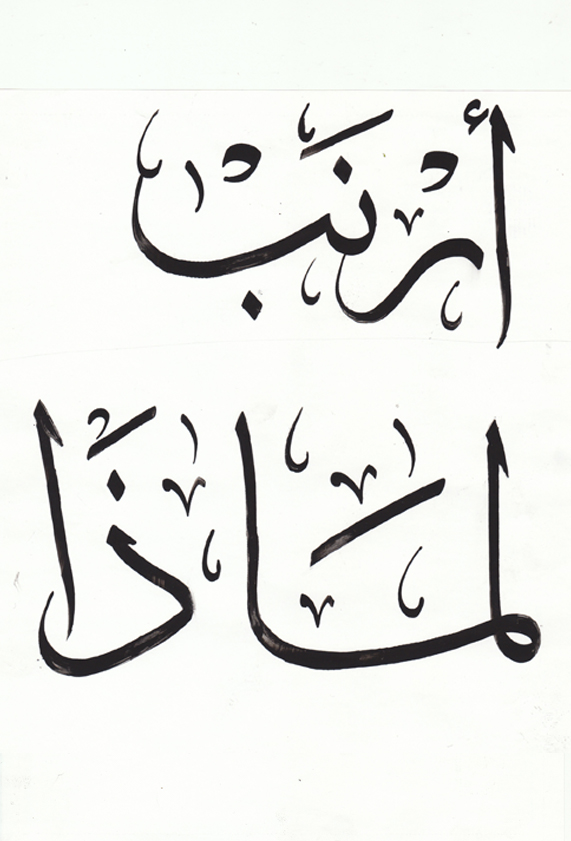 أرْنَب
لمَاذَا